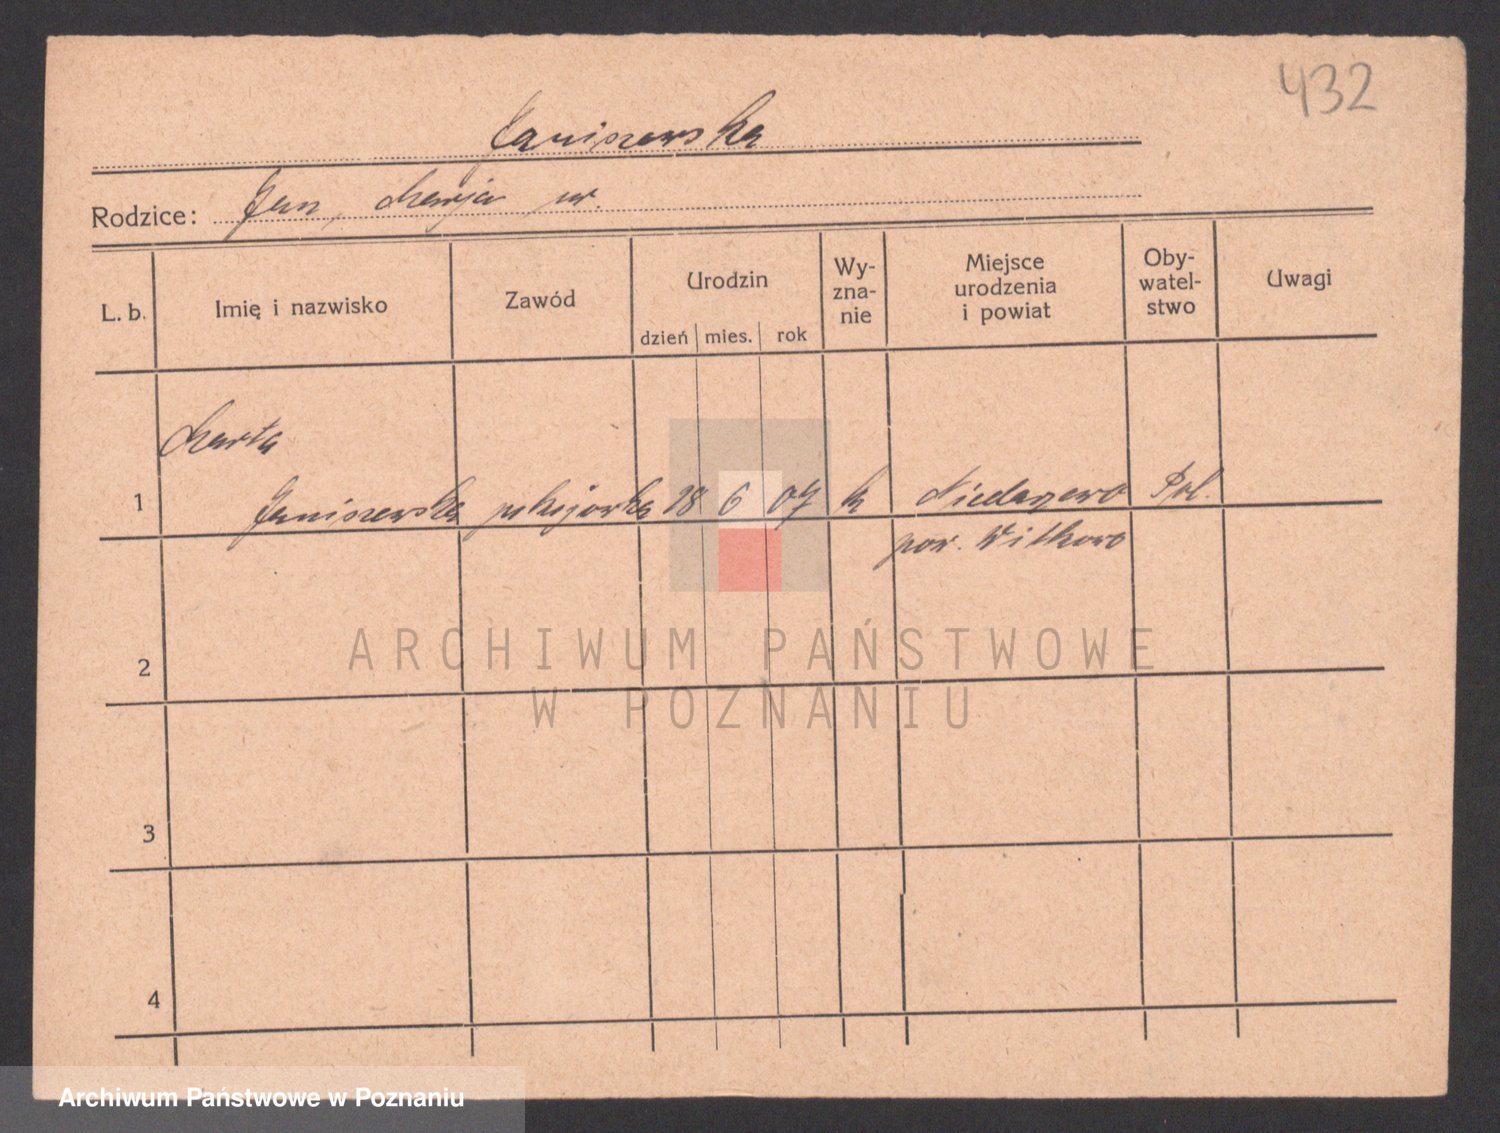 432
Janiszewska
Rodzice: Jan, Marja nr.
L. b. Imię i nazwisko Zawód Urodzin dzień mies. rok Wy-zna-nie Miejsce urodzenia i powiat Oby-watel-stwo Uwagi
Marta
1 Janiszewska pokojowka 28 6 07 k Pol.
pow. Witkowo
2
ARCHIWUM PAŃSTWOWE
W POZNANIU
3
4
Archiwum Państwowe w Poznaniu